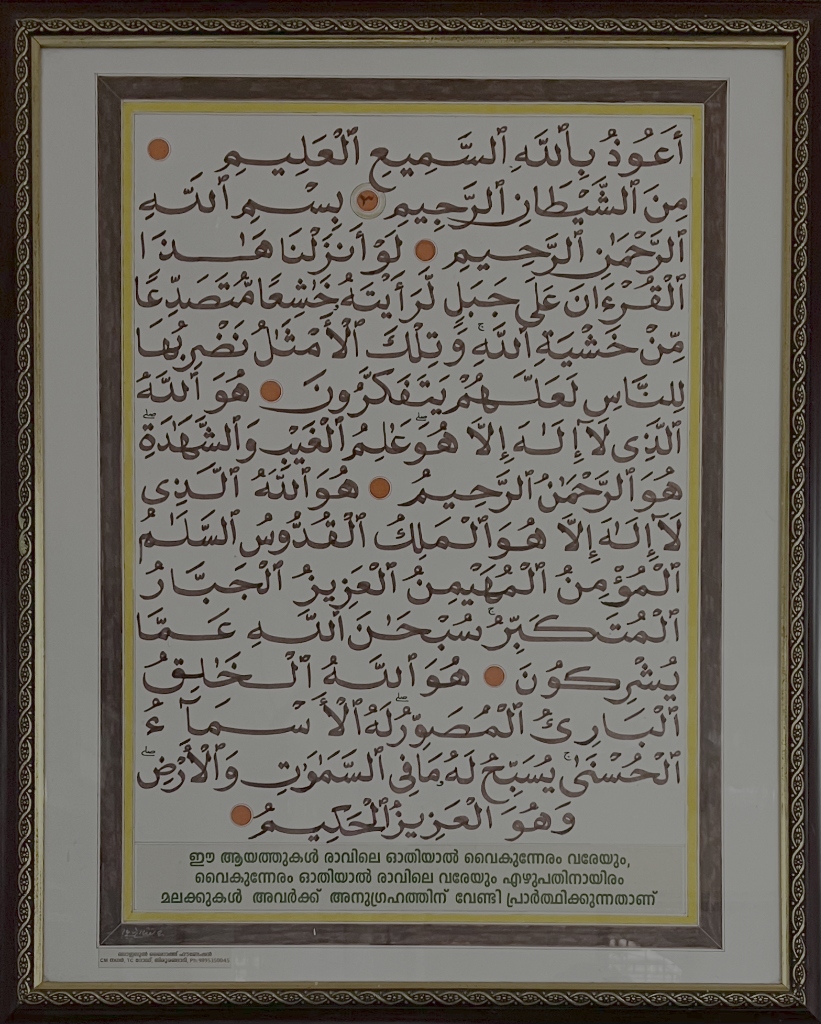 أَعُوذُ بِٱللَّهِ ٱلسَّمِيعِ ٱلْعَلِيمِ
مِنَ ٱلشَّيْطَانِ ٱلرَّجِيمِ ٣ بِسْمِ ٱللَّهِ
ٱلرَّحْمَٰنِ ٱلرَّحِيمِ لَوْ أَنزَلْنَا هَٰذَا
ٱلْقُرْءَانَ عَلَىٰ جَبَلٍ لَّرَأَيْتَهُۥ خَٰشِعًا مُّتَصَدِّعًا
مِّنْ خَشْيَةِ ٱللَّهِ ۚ وَتِلْكَ ٱلْأَمْثَٰلُ نَضْرِبُهَا
لِلنَّاسِ لَعَلَّهُمْ يَتَفَكَّرُونَ هُوَ ٱللَّهُ
ٱلَّذِى لَآ إِلَٰهَ إِلَّا هُوَ ۖ عَٰلِمُ ٱلْغَيْبِ وَٱلشَّهَٰدَةِ ۖ
هُوَ ٱلرَّحْمَٰنُ ٱلرَّحِيمُ هُوَ ٱللَّهُ ٱلَّذِى
لَآ إِلَٰهَ إِلَّا هُوَ ٱلْمَلِكُ ٱلْقُدُّوسُ ٱلسَّلَٰمُ
ٱلْمُؤْمِنُ ٱلْمُهَيْمِنُ ٱلْعَزِيزُ ٱلْجَبَّارُ
ٱلْمُتَكَبِّرُ ۚ سُبْحَٰنَ ٱللَّهِ عَمَّا
يُشْرِكُونَ هُوَ ٱللَّهُ ٱلْخَٰلِقُ
ٱلْبَارِئُ ٱلْمُصَوِّرُ ۖ لَهُ ٱلْأَسْمَآءُ
ٱلْحُسْنَىٰ ۚ يُسَبِّحُ لَهُۥ مَا فِى ٱلسَّمَٰوَٰتِ وَٱلْأَرْضِ ۖ
وَهُوَ ٱلْعَزِيزُ ٱلْحَكِيمُ
ഈ ആയത്തുകൾ രാവിലെ ഓതിയാൽ വൈകുന്നേരം വരേയും,
വൈകുന്നേരം ഓതിയാൽ രാവിലെ വരേയും എഴുപതിനായിരം
മലക്കുകൾ അവർക്ക് അനുഗ്രഹത്തിന് വേണ്ടി പ്രാർത്ഥിക്കുന്നതാണ്